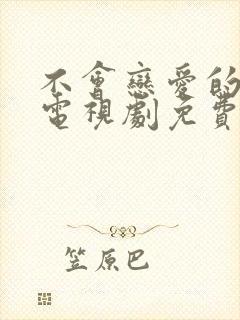 不會戀愛的
電視劇免費
笠原巴